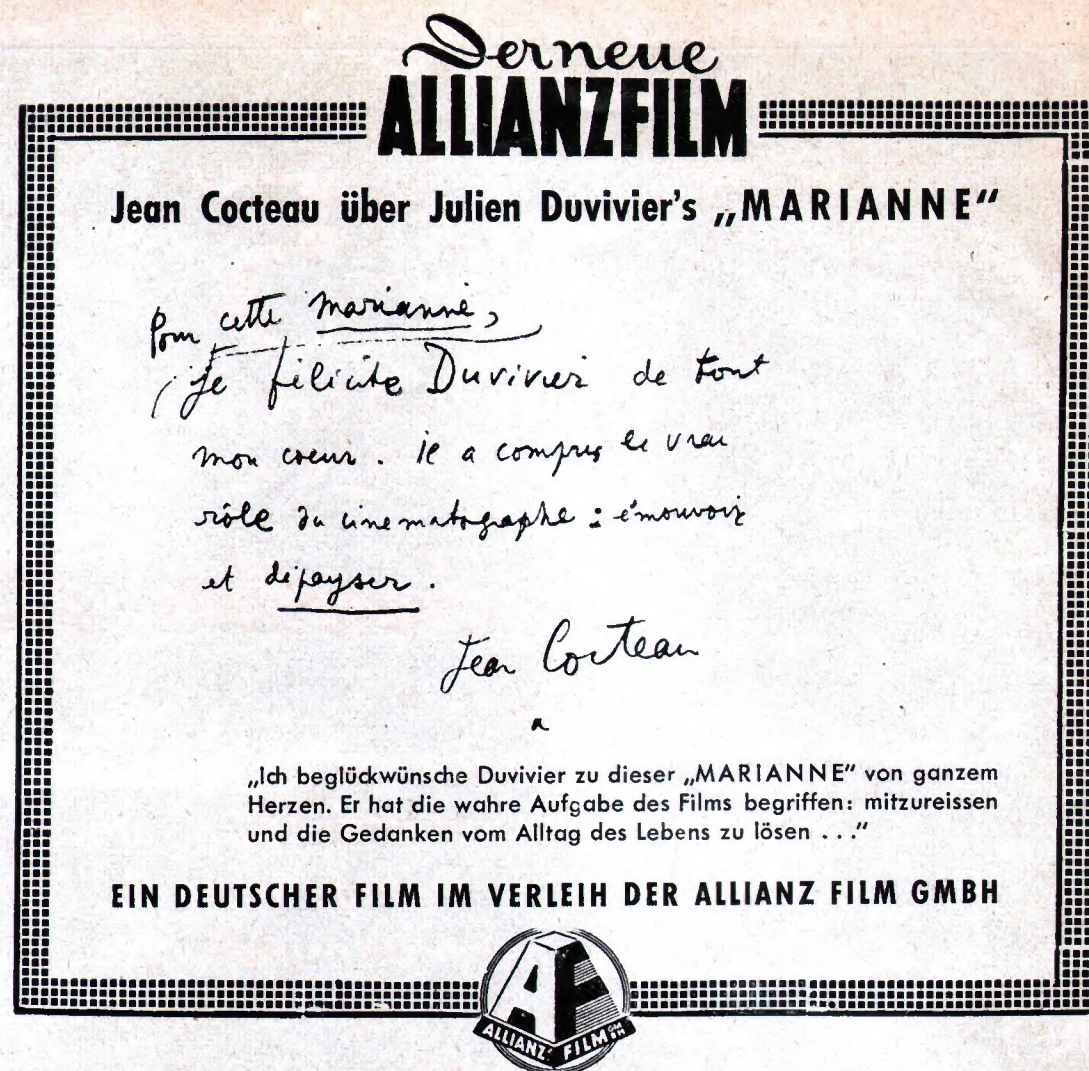 Der neue
ALLIANZFILM
Jean Cocteau über Julien Duvivier's „MARIANNE"
Pour cette Marianne,
je félicite Duvivier de tout
mon coeur. il a compris le vrai
rôle du cinematographe : émouvoir
et dépayser.
Jean Cocteau
„Ich beglückwünsche Duvivier zu dieser „MARIANNE" von ganzem
Herzen. Er hat die wahre Aufgabe des Films begriffen: mitzureissen
und die Gedanken vom Alltag des Lebens zu lösen . . ."
EIN DEUTSCHER FILM IM VERLEIH DER ALLIANZ FILM GMBH
AF
ALLIANZ FILM GMBH